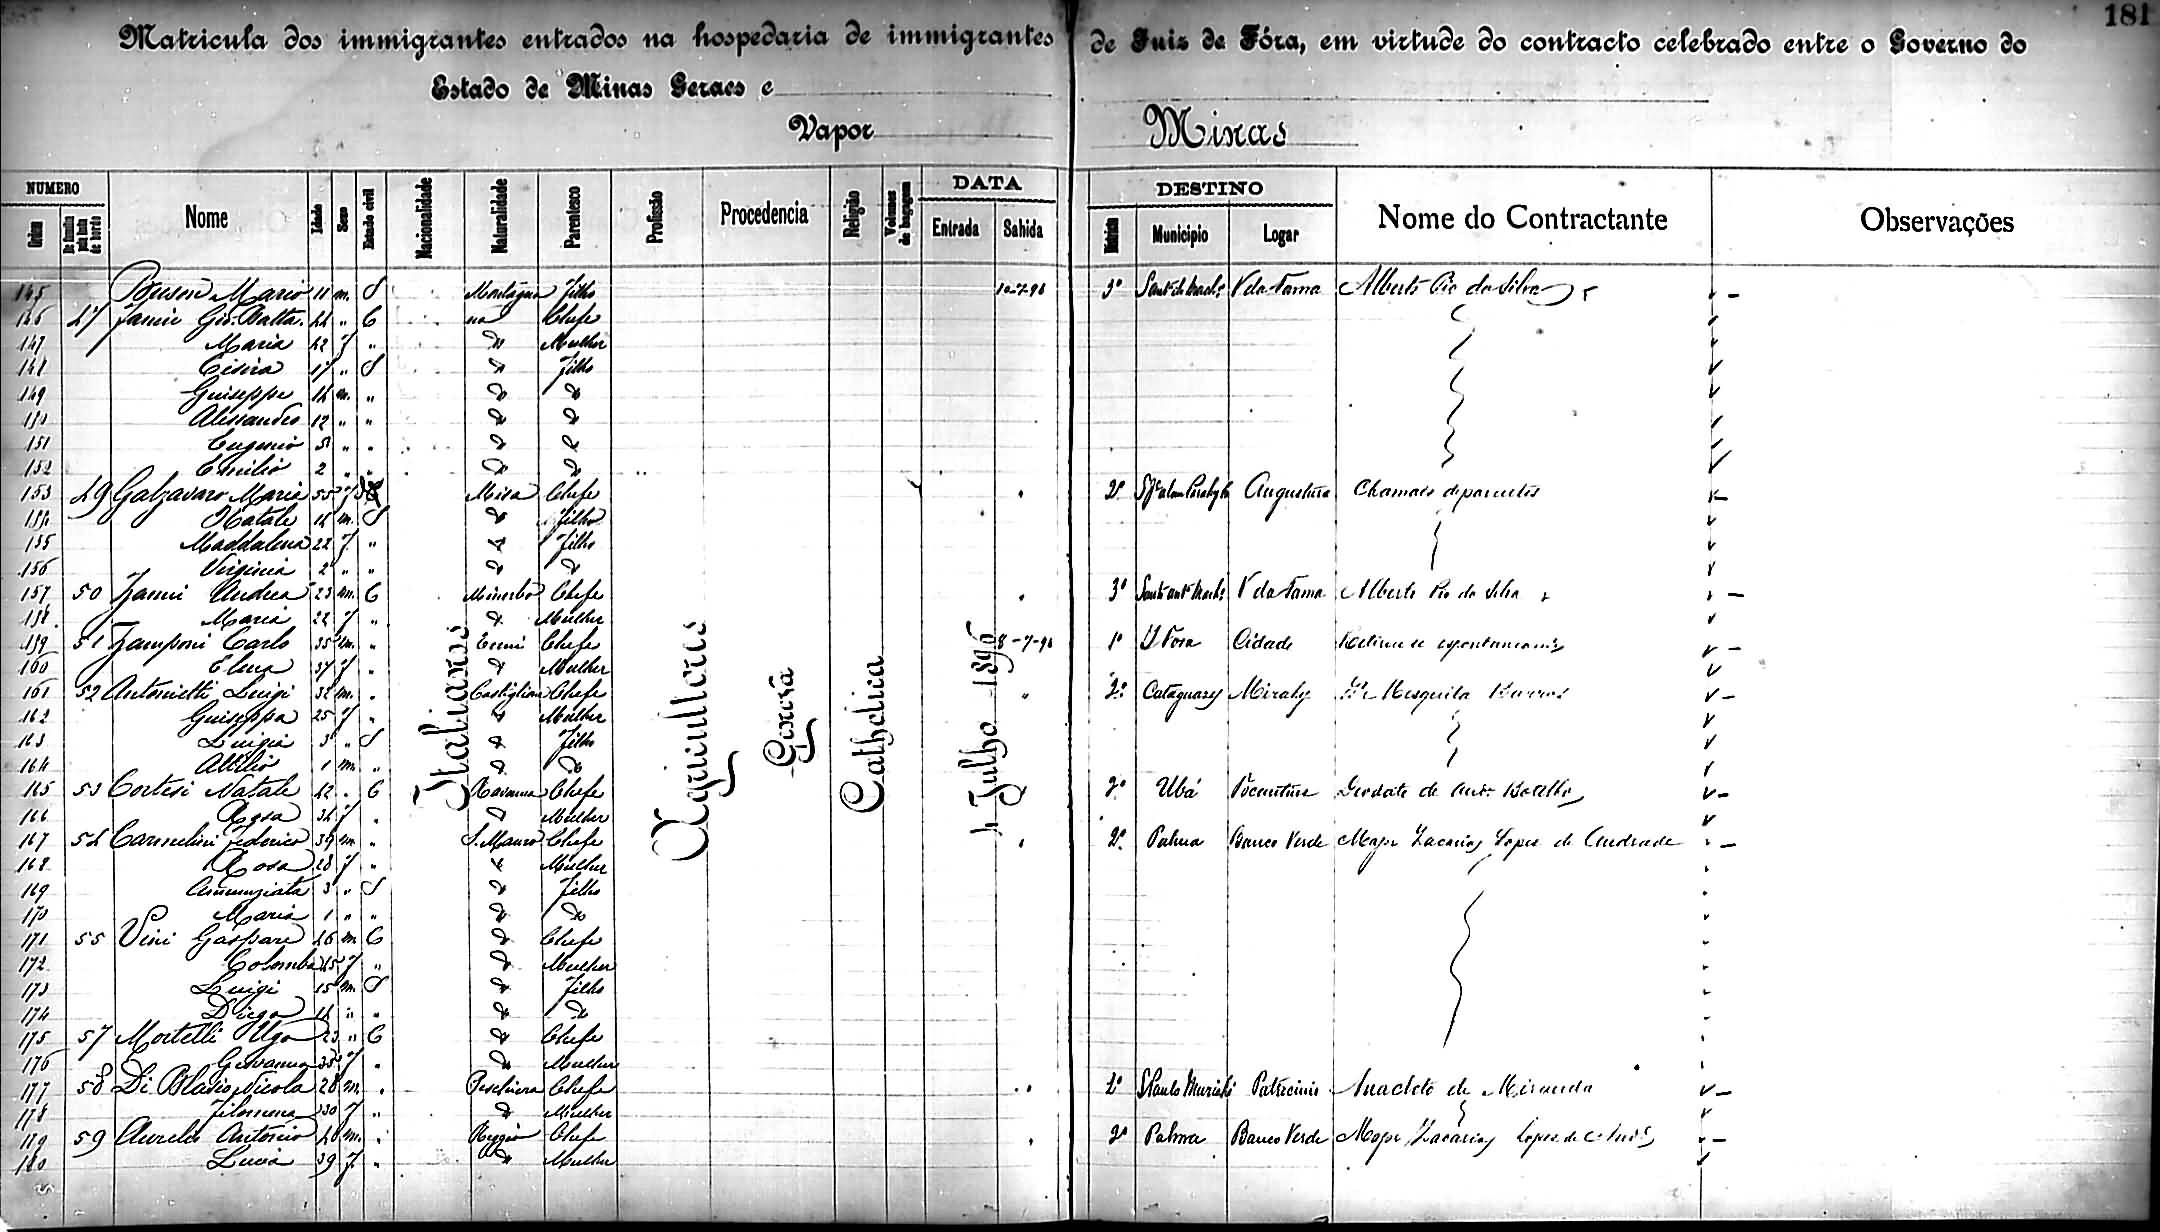 181
Matricula dos immigrantes entrados na hospedaria de immigrantes de Juiz de Fóra, em virtude do contracto celebrado entre o Governo do
Estado de Minas Geraes e
Vapor Minas
NUMERO DATA DESTINO
Ordem De familia pela lista de bordo Nome Idade Sexo Estado civil Nacionalidade Naturalidade Parentesco Profissão Procedencia Religião Volumes de bagagem Entrada Sahida Districto Municipio Logar Nome do Contractante Observações
Italianos
Agricultores
Genova
Catholica
4 Julho 1896
145 Mario 11 m. S Montagna Filho 10-7-96 3º Alberto Pio da Silva
146 47 Gio. Batta. 44 " C na Chefe
147 Maria 42 f " Do Mulher
148 17 " S Do Filho
149 Guiseppe 14 m. " Do Do
150 Alessandro 12 " " Do Do
151 Eugenio 5 " " Do Do
152 Emilio 2 " " Do Do
153 49 Galzavaro Maria 55 f Chefe " 2º Angustura Chamado de parentes
154 Natale 14 m. S Do Filho
155 Maddalena 22 f. " Do Filho
156 Virginia 2 " " Do Do
157 50 Zanni Andrea 23 m. C Minerbio Chefe " 3º Alberto Pio da Silva
158 Maria 22 f " Do Mulher
159 51 Zamponi Carlo 35 m. " Chefe 8-7-96 1º J Fora Cidade Retirou se espontaneamte
160 Elena 37 f " Do Mulher
161 52 Antonietti Luigi 32 m. " Castiglion Chefe " 2º Cataguazes Mirahy Mesquita Barros
162 Guiseppa 25 f " Do Mulher
163 Luigia 3 " S Do Filho
164 Attilio 1 m. " Do Do
165 53 Cortesi Natale 42 " C Ravenna Chefe 2º Ubá Deodato de Andr. Botelho
166 Rosa 34 f " Do Mulher
167 54 Carmelini Federico 39 m. " S. Mauro Chefe " 2º Palma Banco Verde Major Zacarias Lopes de Andrade
168 Rosa 28 f " Do Mulher
169 Annunziata 3 " S Do Filho
170 Maria 1 " " Do Do
171 55 Vini Gaspare 46 m C Do Chefe
172 Colomba 45 f " Do Mulher
173 Luigi 15 m. S Do Filho
174 Diego 14 " " Do Do
175 57 Mortelli Ugo 23 " C Do Chefe
176 Giovanna 35 f " Do Mulher
177 58 Di Blasio Nicola 28 m. " Peschiera Chefe " S Paulo Muriahé Patrocinio Anacleto de Miranda
178 Filomena 30 f " Do Mulher
179 59 Aurelio Antonio m. " Reggio Chefe " 2º Palma Banco Verde Major Zacarias Lopes de Andr.
180 Lucia 39 f. " Do Mulher